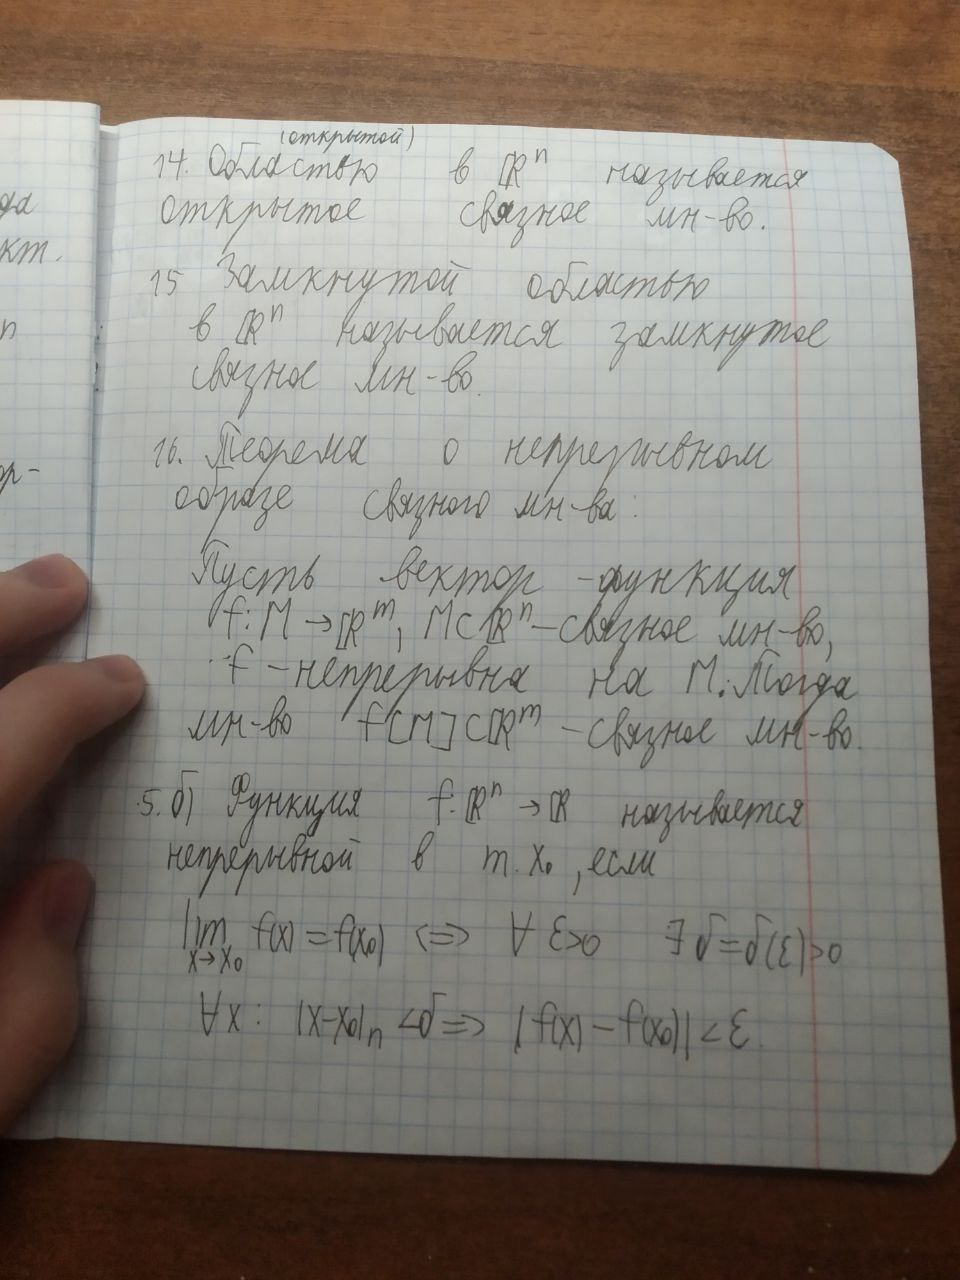 да
кт.
n
ор-
(открытой)
14. Областью в ℝⁿ называется
открытое связное мн-во.
15 Замкнутой областью
в ℝⁿ называется замкнутое
связное мн-во.
16. Теорема о непрерывном
образе связного мн-ва:
Пусть вектор-функция
f: M → ℝᵐ, M⊂ℝⁿ – связное мн-во,
f – непрерывна на M. Тогда
мн-во f[M]⊂ℝᵐ – связное мн-во.
5. б) Функция f: ℝⁿ → ℝ называется
непрерывной в т. x₀, если
lim f(x) = f(x₀) <=> ∀ ε>0 ∃ δ=δ(ε)>0
x→x₀
∀x: |x-x₀|ₙ <δ => |f(x) – f(x₀)| < ε.